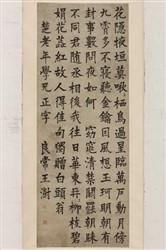 花隱掖垣暮啾〻栖鳥過星臨萬戶動月傍
九霄多不寢聽金鑰因風想玉珂明朝有
封事數問夜如何 窈窕清禁闥罷朝歸
不同君隨丞相後我往日華東冉〻柳枝碧
娟〻花蕊紅故人得佳句獨贈白頭翁
楚老年學兄正字 良常王澍